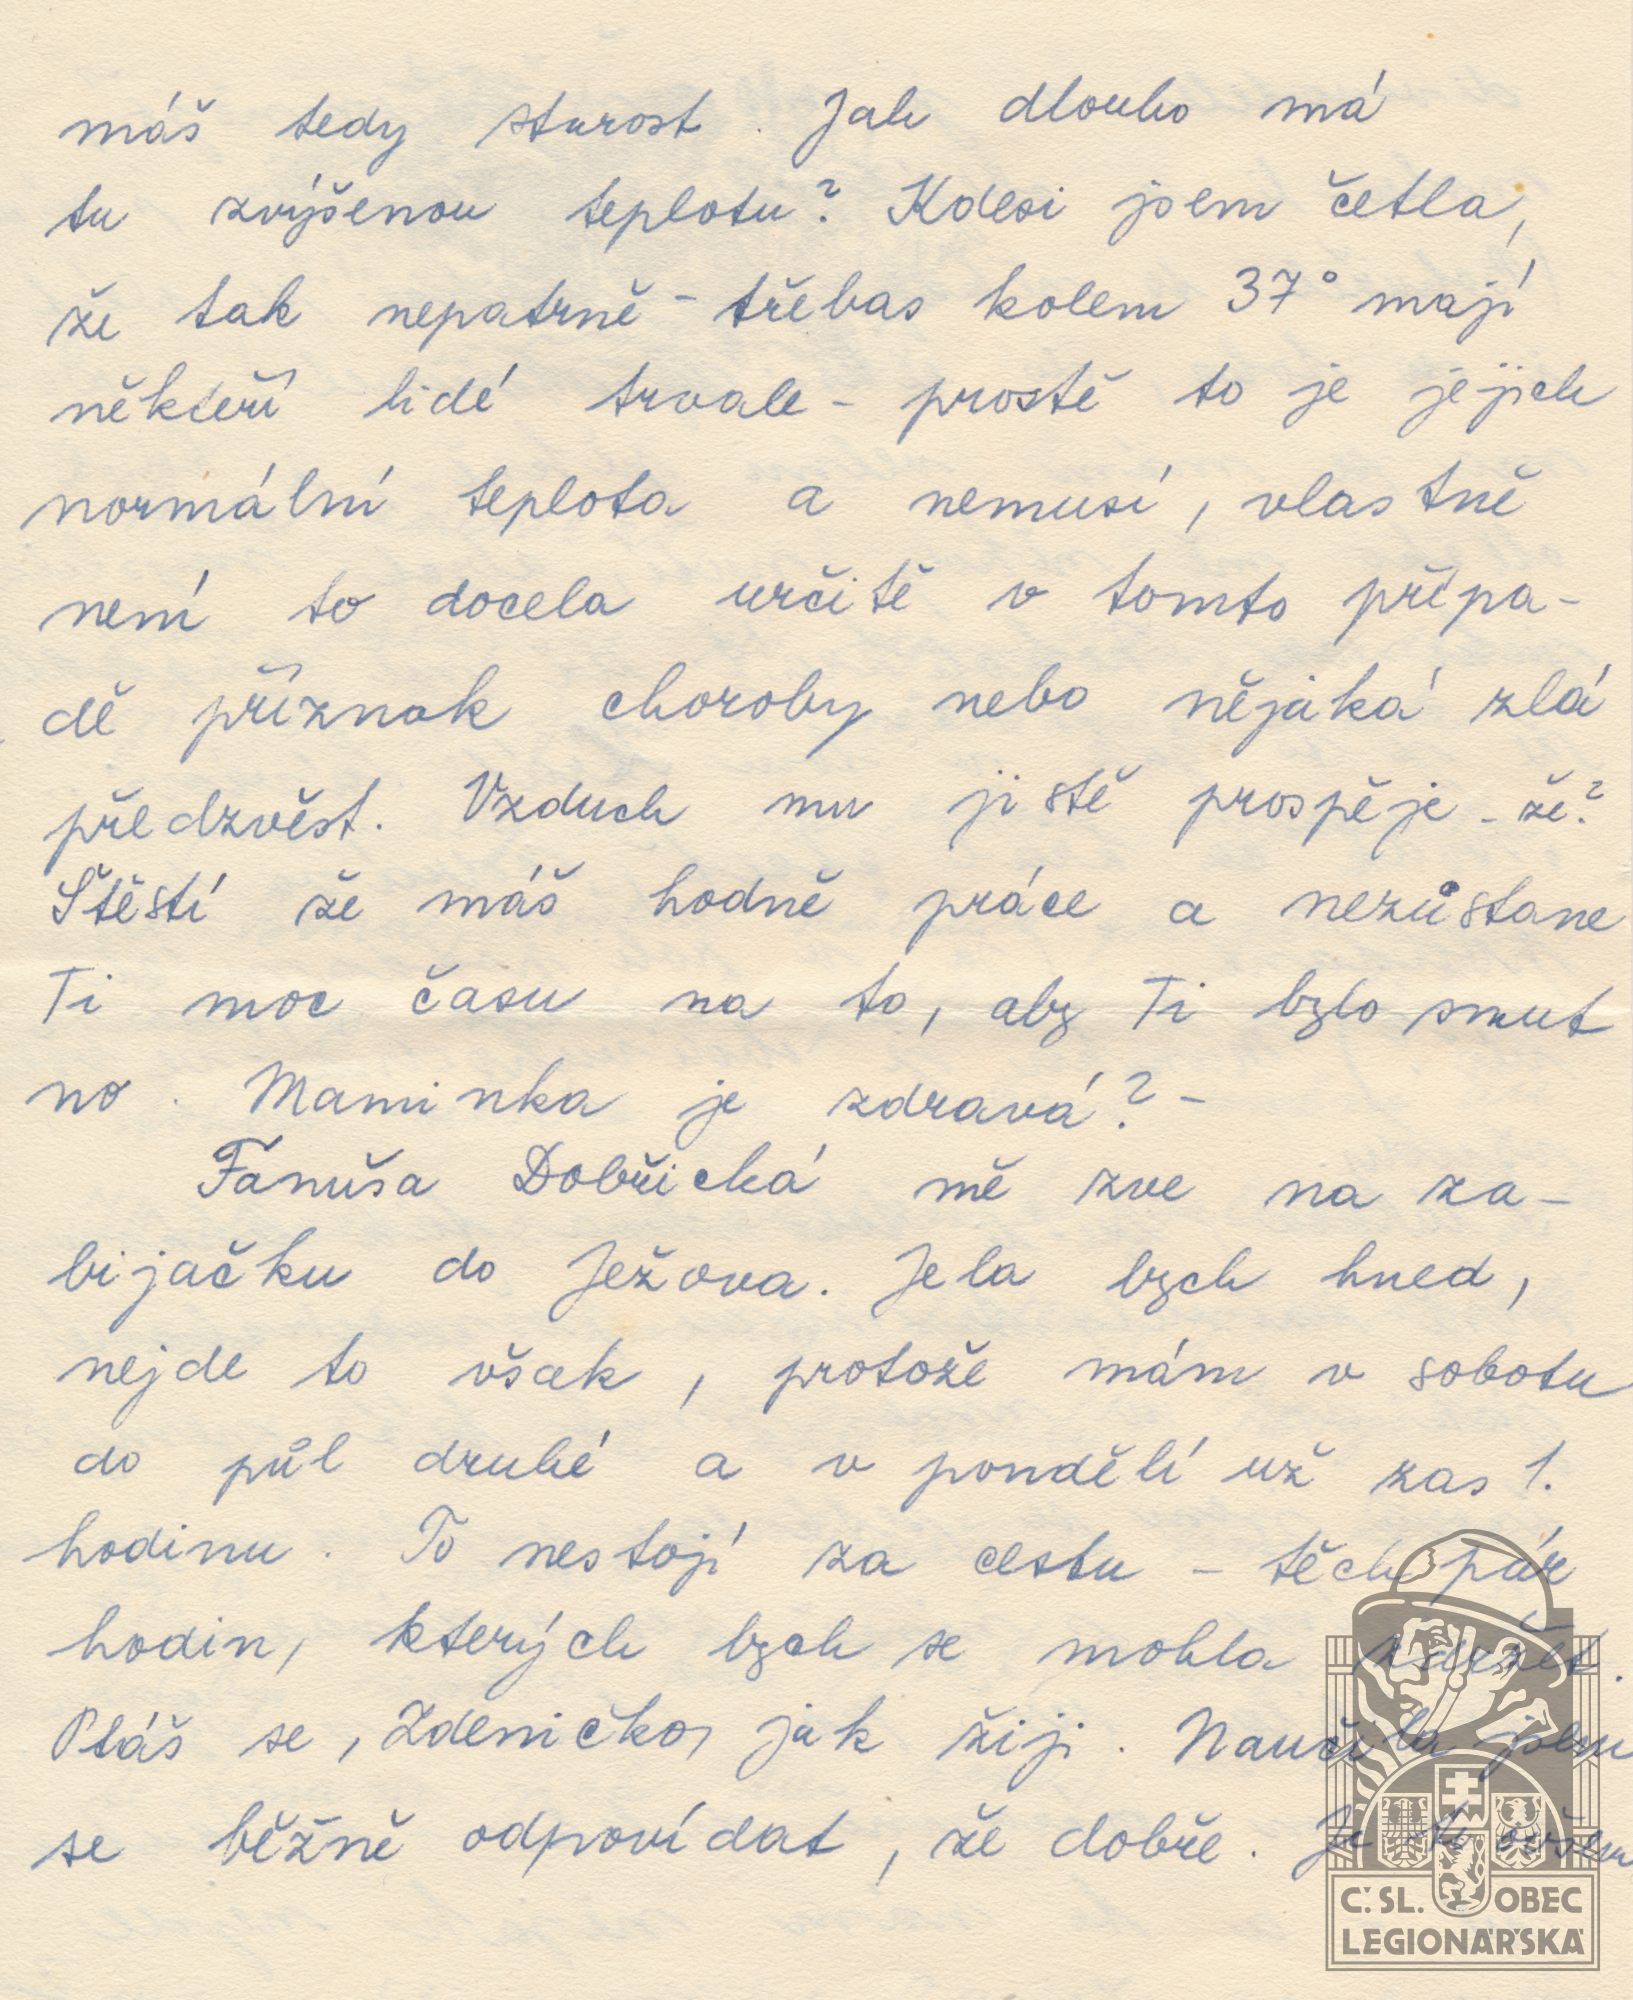 máš tedy starost. Jak dlouho má
tu zvýšenou teplotu? Kdesi jsem četla,
že tak nepatrně - třebas kolem 37° mají
někteří lidé trvale - prostě to je jejich
normální teplota a nemusí, vlastně
není to docela určitě v tomto přípa-
dě příznak choroby nebo nějaká zlá
předzvěst. Vzduch mu jistě prospěje - že?
Štěstí že máš hodně práce a nezůstane
Ti moc času na to, aby Ti bylo smut
no. Maminka je zdravá? -
Fanuša Dobřická mě zve na za-
bijačku do Ježova. Jela bych hned,
nejde to však, protože mám v sobotu
do půl druhé a v pondělí už zas 1.
hodinu. To nestojí za cestu - těch pár
hodin, kterých bych se mohla zdržet.
Ptáš se, Zdeničko, jak žiji. Naučila jsem
se běžně odpovídat, že dobře. Je to ovšem
Č.SL. OBEC
LEGIONÁŘSKÁ